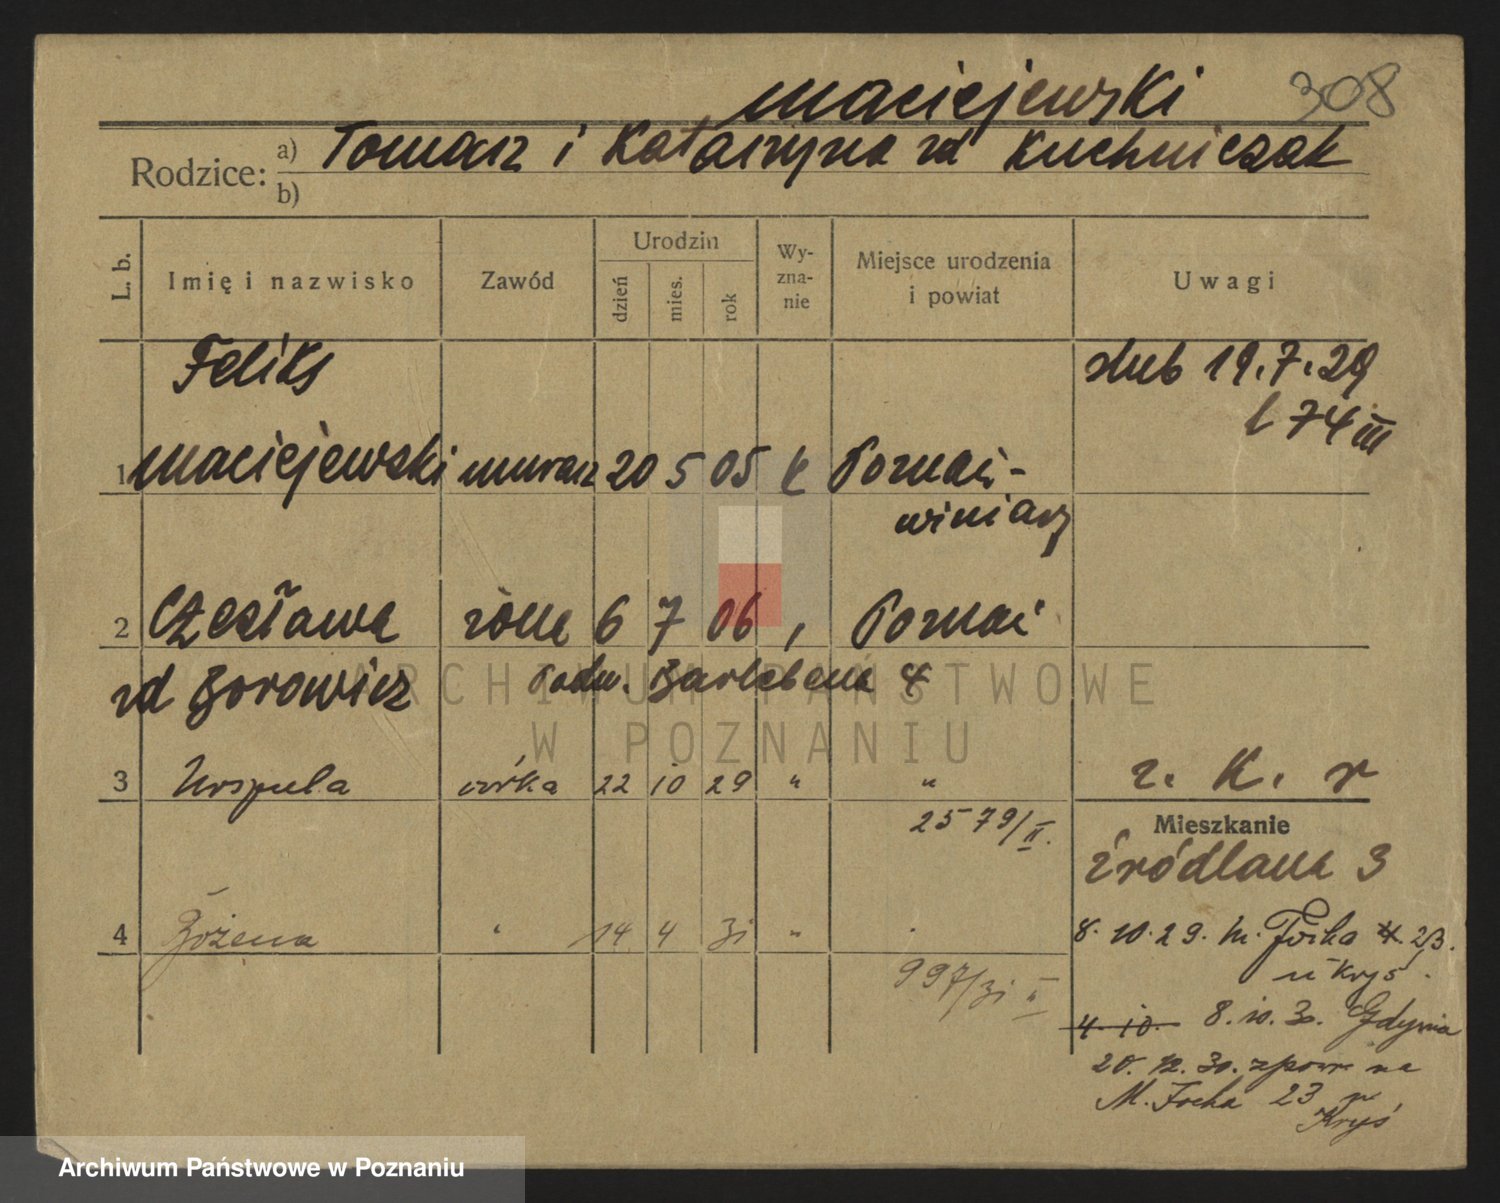 Maciejewski 308
Rodzice: a) Tomasz i Katarzyna zd Kuchniczak
b)
L. b. Imię i nazwisko Zawód Urodzin dzień mies. rok Wyznanie Miejsce urodzenia i powiat Uwagi
Feliks ślub 19.7.29
l 74 III
1 Maciejewski murarz 20 5 05 k Poznań-
winiary
2 Czesława żona 6 7 06 , Poznań
zd Borowicz
4
ARCHIWUM PAŃSTWOWE
W POZNANIU
3 Urszula córka 22 10 29 " " z. K. r
2579/II.
Mieszkanie
Źródlana 3
4 Bożena " 14 4 31 " "
997/31 II
8.10.29. M. Focha 4. 23.
u Kryś.
4.10. 8.10.30. Gdynia
20.12.30. zpow. na
M. Focha 23 u
Kryś
Archiwum Państwowe w Poznaniu